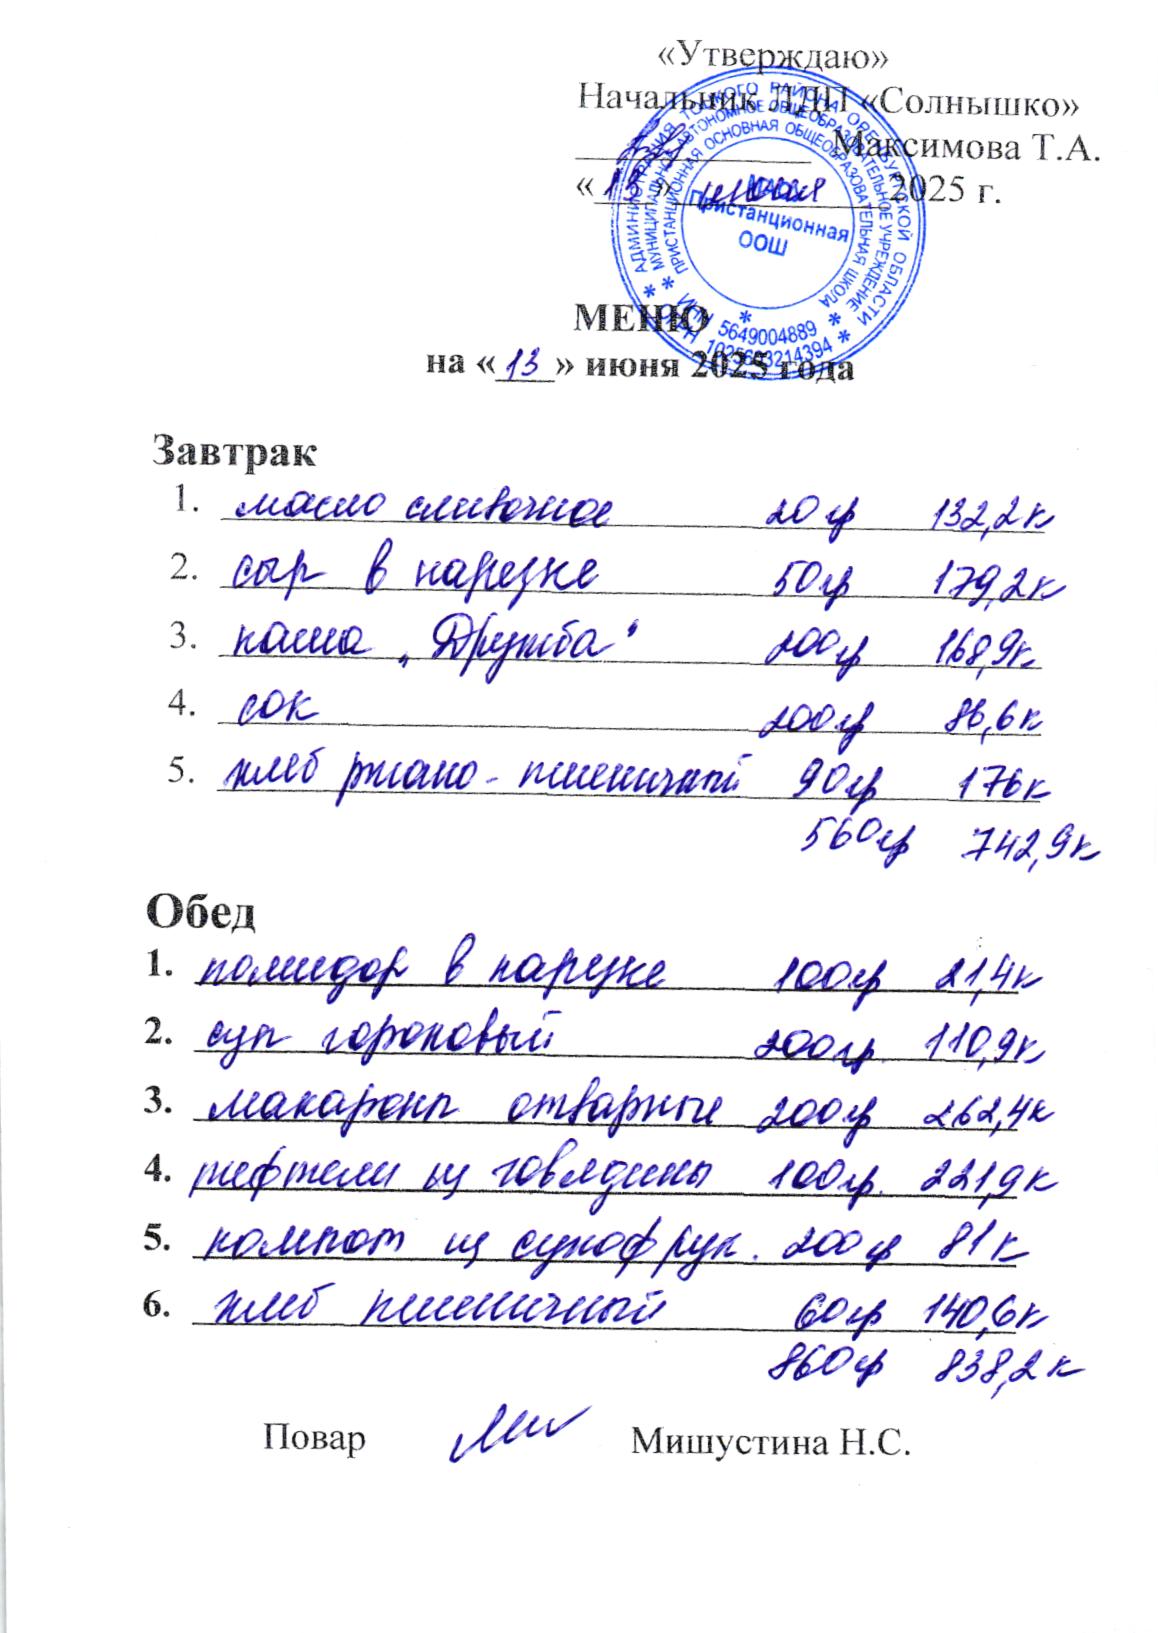 «Утверждаю»
Начальник ЛДП «Солнышко»
Максимова Т.А.
«13» июня 2025 г.
АДМИНИСТРАЦИЯ ТОЦКОГО РАЙОНА ОРЕНБУРГСКОЙ ОБЛАСТИ
МУНИЦИПАЛЬНОЕ АВТОНОМНОЕ ОБЩЕОБРАЗОВАТЕЛЬНОЕ УЧРЕЖДЕНИЕ
ПРИСТАНЦИОННАЯ ОСНОВНАЯ ОБЩЕОБРАЗОВАТЕЛЬНАЯ ШКОЛА
МАОУ
Пристанционная
ООШ
ИНН 5649004889
ОГРН 1025603214394
МЕНЮ
на «13» июня 2025 года
Завтрак
1. масло сливочное 20гр 132,2к
2. сыр в нарезке 50гр 179,2к
3. каша „Дружба" 200гр 168,9к
4. сок 200гр 86,6к
5. хлеб ржано-пшеничный 90гр 176к
560гр 742,9к
Обед
1. помидор в нарезке 100гр 21,4к
2. суп гороховый 200гр. 110,9к
3. макароны отварные 200гр 262,4к
4. тефтели из говядины 100гр. 221,9к
5. компот из сухофрук. 200гр 81к
6. хлеб пшеничный 60гр 140,6к
860гр 838,2к
Повар Мишустина Н.С.